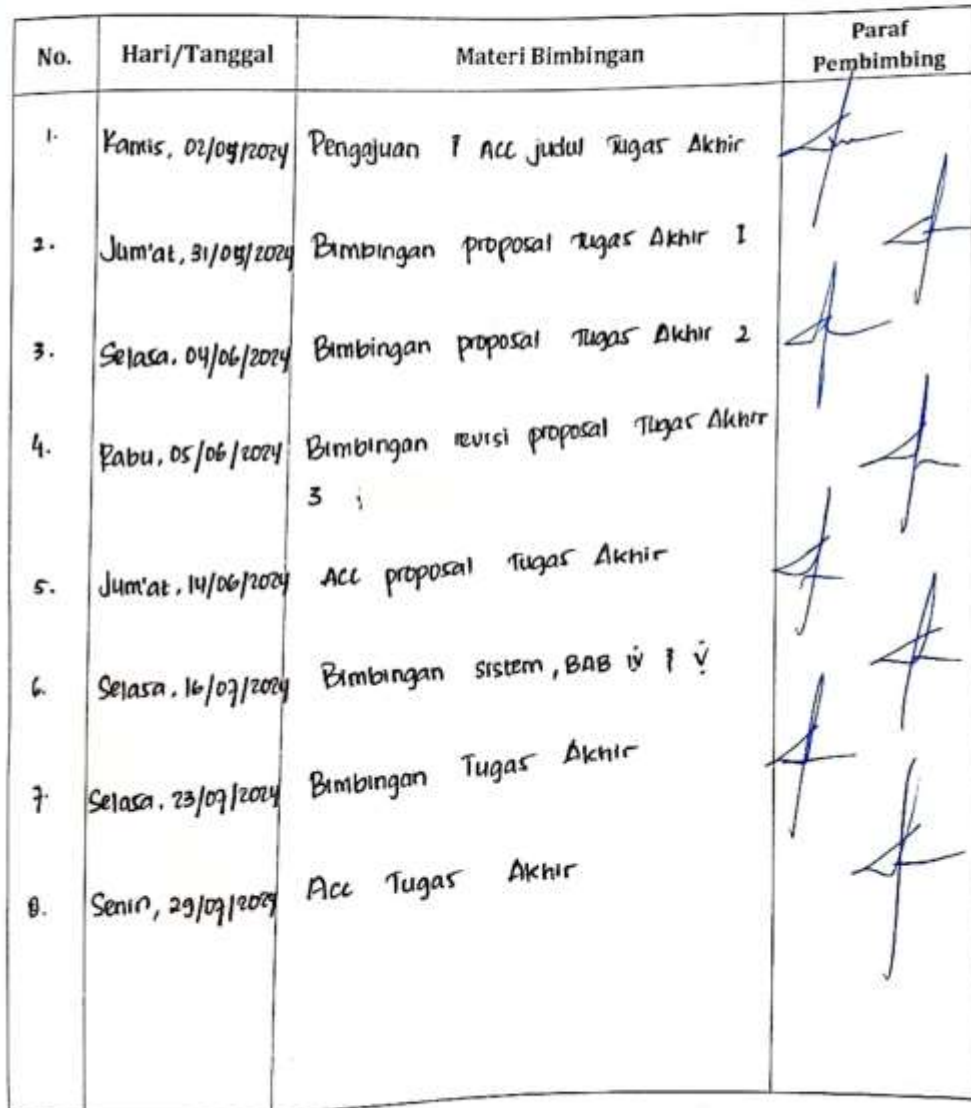 No. Hari/Tanggal Materi Bimbingan Paraf
Pembimbing
1. Kamis, 02/05/2024 Pengajuan & Acc judul Tugas Akhir
2. Jum'at, 31/05/2024 Bimbingan proposal Tugas Akhir 1
3. Selasa, 04/06/2024 Bimbingan proposal Tugas Akhir 2
4. Rabu, 05/06/2024 Bimbingan revisi proposal Tugas Akhir
3
5. Jum'at, 14/06/2024 Acc proposal Tugas Akhir
6. Selasa, 16/07/2024 Bimbingan sistem, BAB IV & V
7. Selasa, 23/07/2024 Bimbingan Tugas Akhir
8. Senin, 29/07/2024 Acc Tugas Akhir